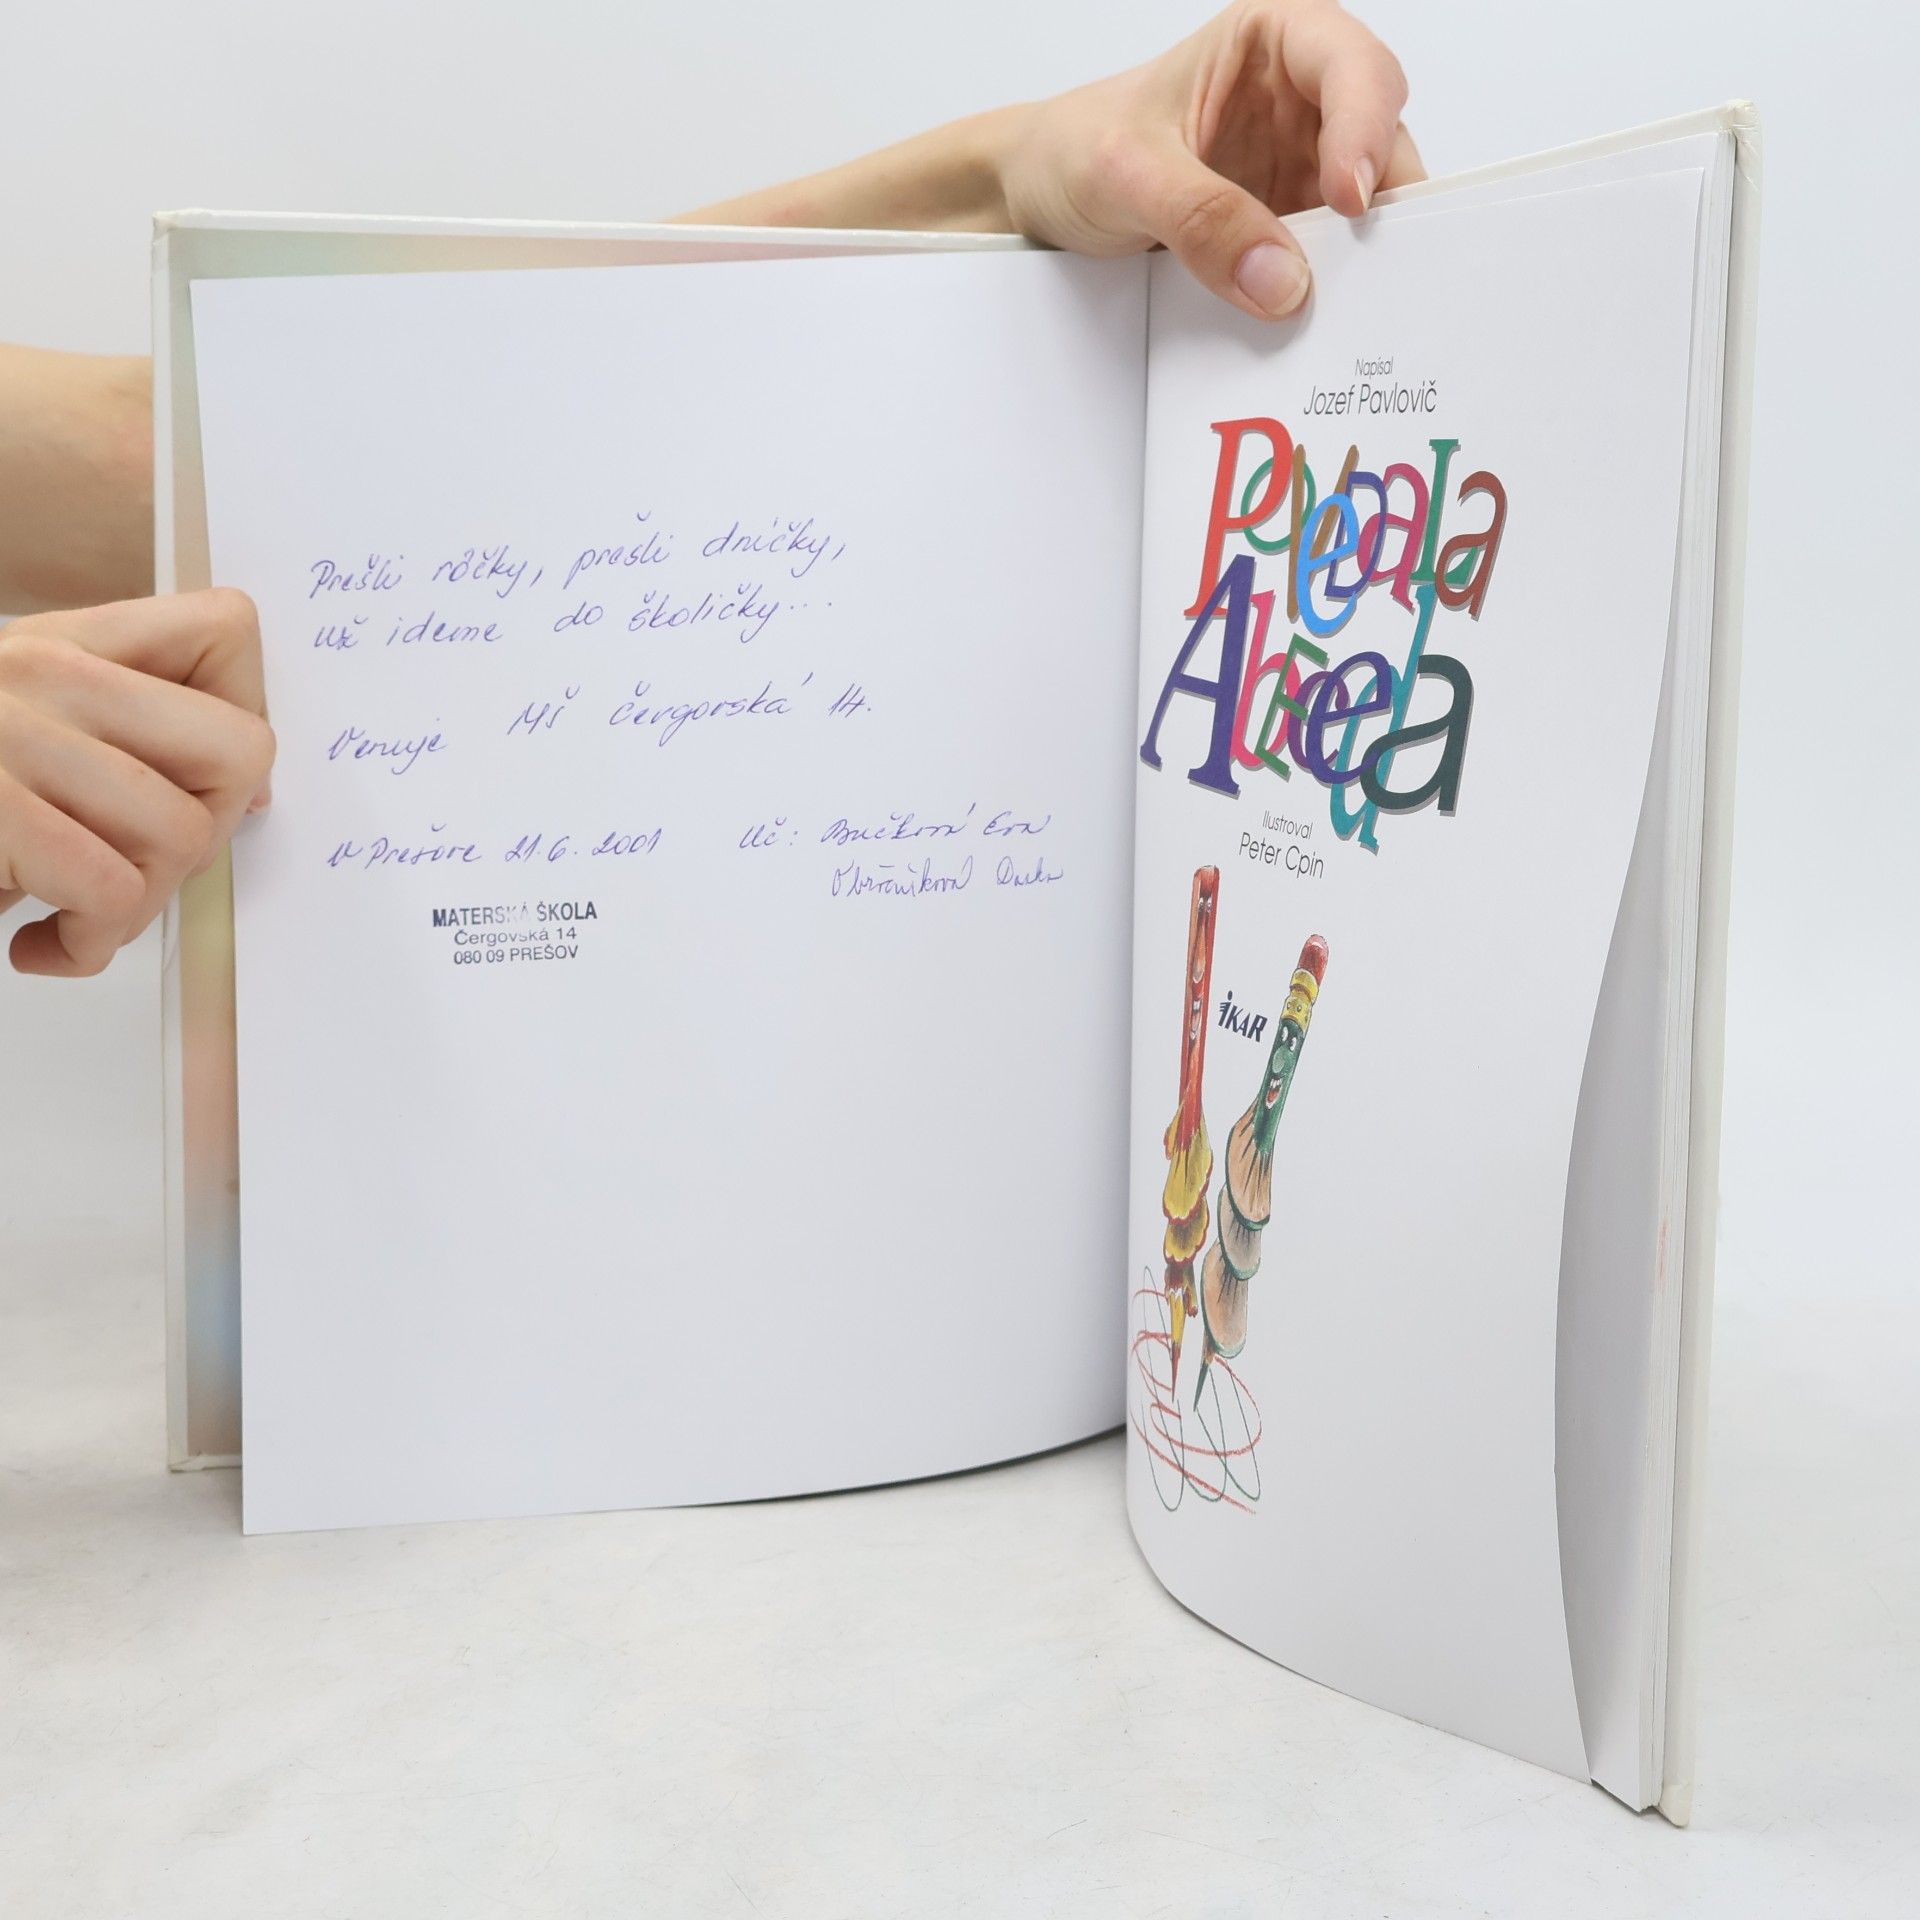 Prešli rôčky, prešli dníčky,
už ideme do školičky...
Venuje MŠ Čergovská 14.
V Prešove 21.6.2001 Uč: Bučková Eva
Darka
MATERSKÁ ŠKOLA
Čergovská 14
080 09 PREŠOV
Napísal
Jozef Pavlovič
Povedala
Abeceda
Ilustroval
Peter Cpin
IKAR